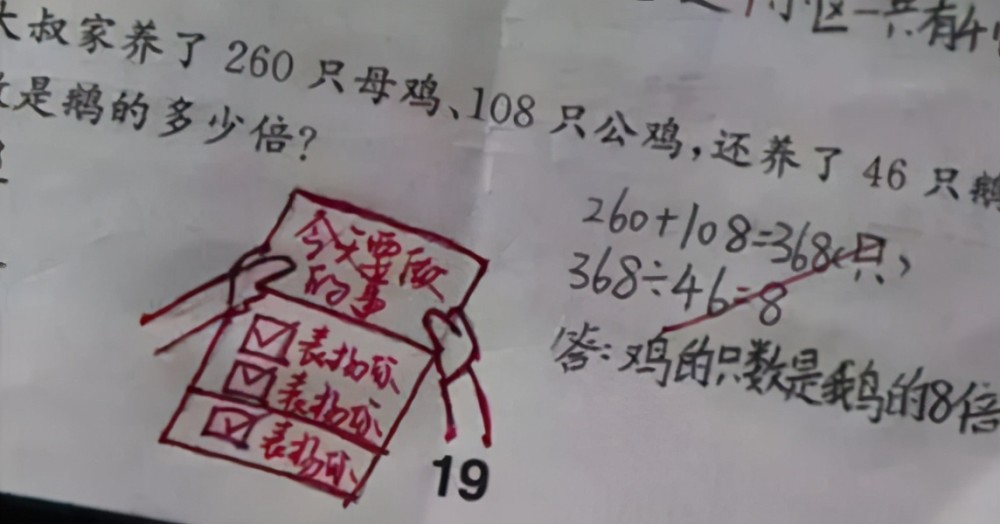 小区一共有4
大叔家养了 260 只母鸡、108 只公鸡,还养了 46 只鹅
是鹅的多少倍?
260+108=368(只)
368÷46=8
答:鸡的只数是鹅的8倍
今天要做
的事
表扬你
表扬你
表扬你
19